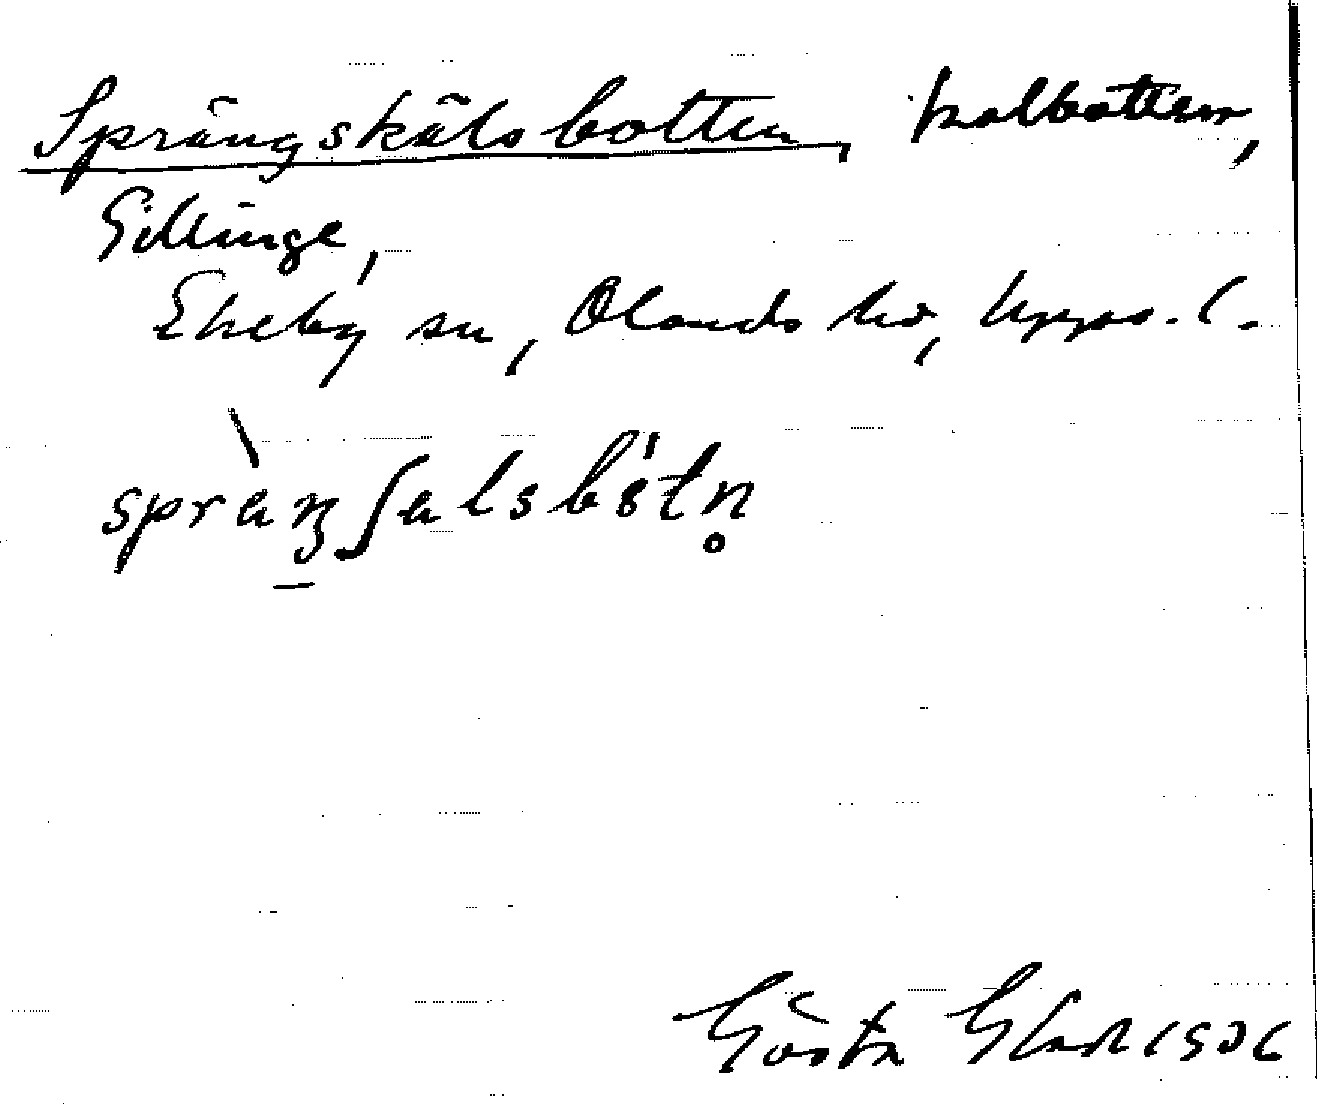 Sprängskälsbotten, kolbotten,
Gillinge,
Ekeby sn, Olands hd, Upps. l.
spràŋʃalsbòtn̥
Gösta